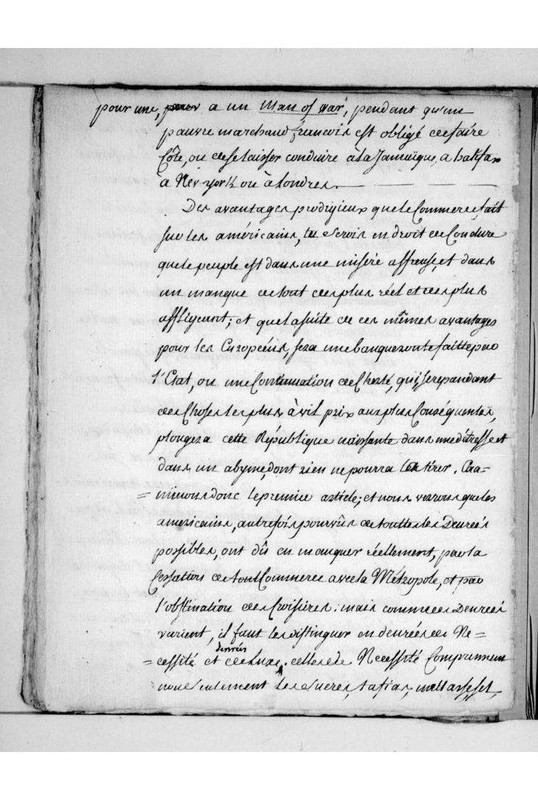 pour une, pour a un Man of War, pendant qu'un
pauvre marchand françois est obligé de faire
Côte, ou de se laisser conduire a la Jamaïque, a halifax
a New york ou à Londres.
Des avantages prodigieux que le Commerce fait
sur les américains, tu serois en droit de Conclure
que le peuple est dans une misère affreuse, et dans
un manque de tout des plus réel et des plus
affligeant; et que la suite de ces mêmes avantages
pour les Européens, sera une banqueroute faitte par
l'Etat, ou une Continuation de Cherté, qui se repandant
des Choses les plus à vil prix aux plus Conséquentes,
plongera cette République naissante dans une détresse et
dans un abyme, dont rien ne pourra la tirer. Exa-
=minons donc le premier article; et nous verrons que les
américains, autrefois pourvûs de touttes les Denrées
possibles, ont dû en manquer réellement, par la
Cessation de tout Commerce avec la Métropole, et par
l'obstination des Croisières: mais comme ces Denrées
varient, il faut les distinguer en denrées de Né=
=cessité et denrées de Luxe. celles de Nécessité Comprennent
non seulement les Sucres, tafias, mellasses, sel,